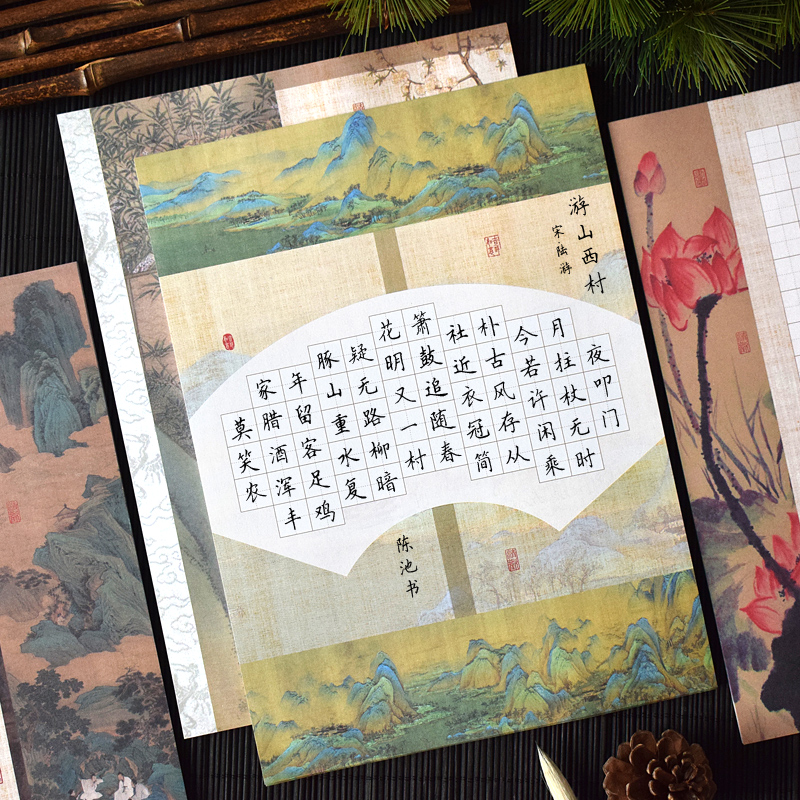 游山西村
宋 陆游
莫笑农
家腊酒浑丰
年留客足鸡
豚山重水复
疑无路柳暗
花明又一村
箫鼓追随春
社近衣冠简
朴古风存从
今若许闲乘
月柱杖无时
夜叩门
陈池书